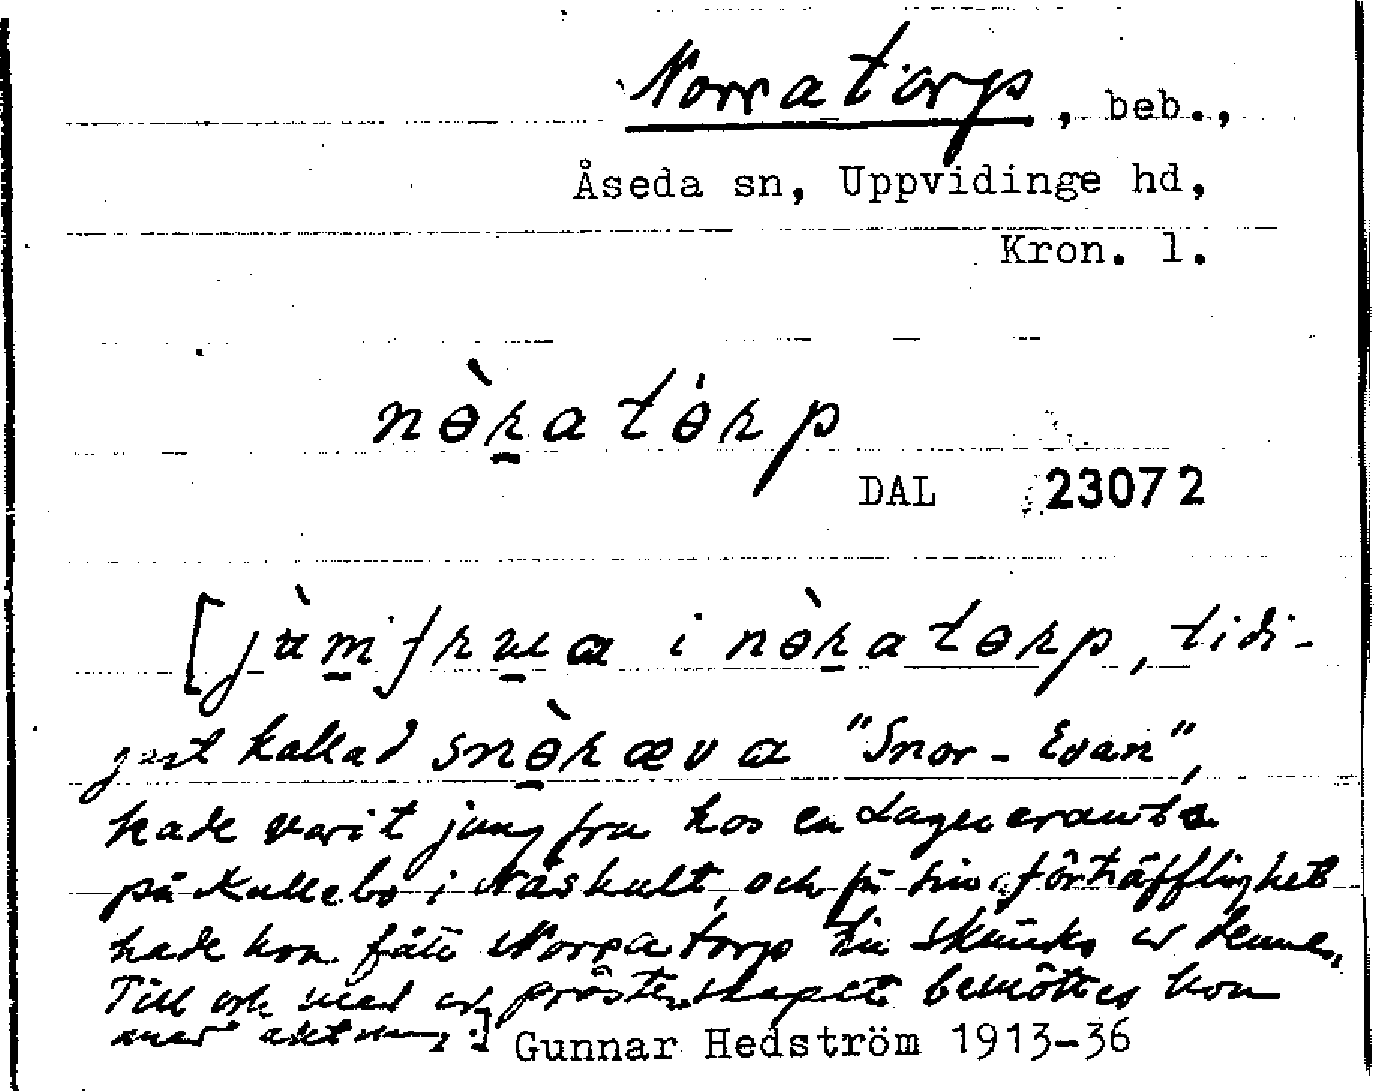 Norratorp, beb.,
Åseda sn, Uppvidinge hd,
Kron. l.
nɵ̀ratɵ́rp
DAL 23072
[jùmfrua i nɵ̀ratɵrp, tidi-
gast kallad snɵ̀ræva "Snor-Evan",
hade varit jungfru hos en Lagercrantz
på Kullebo i Näshult, och för sin förträfflighet
hade hon fått Norratorp till skänks av denne.
Till och med av prästerskapet bemöttes hon
med aktning.]
Gunnar Hedström 1913-36